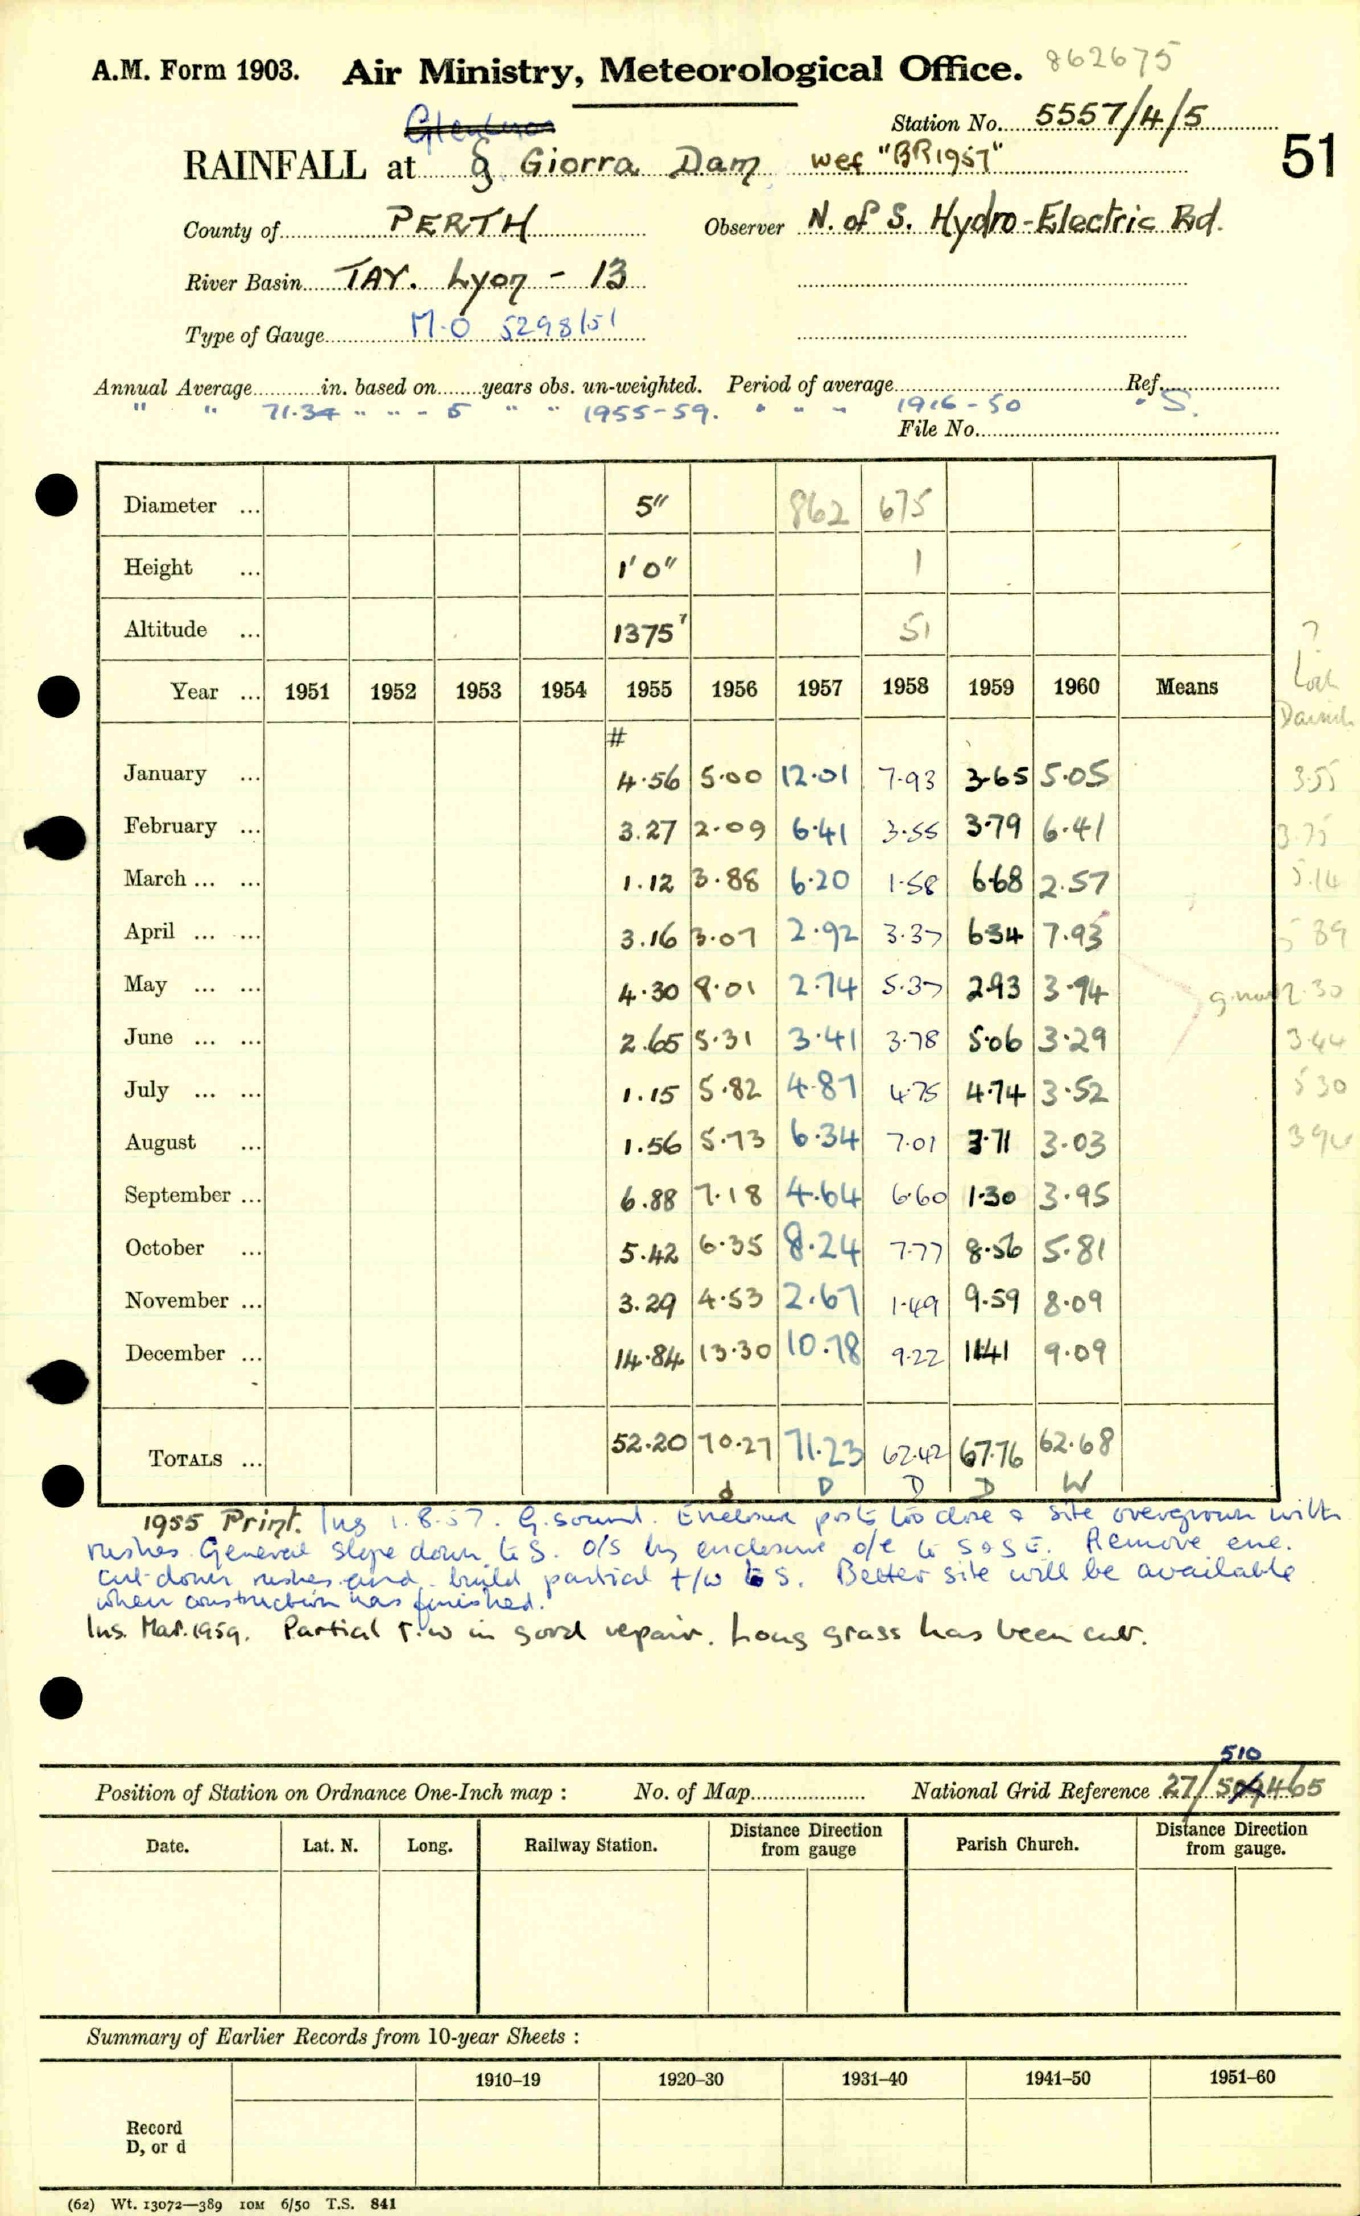 A.M. Form 1903. Air Ministry, Meteorological Office. 862675
Station No. 5557/4/5
RAINFALL at § Giorra Dam wef "BR1957" 51
County of PERTH Observer N. of S. Hydro-Electric Bd.
River Basin TAY. Lyon - 13
Type of Gauge M.O 5298/51
Annual Average in. based on years obs. un-weighted. Period of average Ref.
" " 71.34 " " - 5 " " 1955-59. " " " 1916-50 " S.
File No.
Diameter ... 5" 862 675
Height ... 1'0" 1
Altitude ... 1375' 51
? Loch
Year ... 1951 1952 1953 1954 1955 1956 1957 1958 1959 1960 Means
#
January ... 4.56 5.00 12.01 7.93 3.65 5.05 3.55
February ... 3.27 2.09 6.41 3.55 3.79 6.41 3.75
March ... ... 1.12 3.88 6.20 1.58 6.68 2.57 5.14
April ... ... 3.16 3.07 2.92 3.37 6.34 7.93 5 39
May ... ... 4.30 8.01 2.74 5.37 2.93 3.94 2.30
June ... ... 2.65 5.31 3.41 3.78 5.06 3.29 3.44
July ... ... 1.15 5.82 4.87 4.75 4.74 3.52 5 30
August ... 1.56 5.73 6.34 7.01 3.71 3.03
September ... 6.88 7.18 4.64 6.60 1.30 3.95
October ... 5.42 6.35 8.24 7.77 8.56 5.81
November ... 3.29 4.53 2.67 1.49 9.59 8.09
December ... 14.84 13.30 10.78 9.22 11.41 9.09
TOTALS ... 52.20 70.27 71.23 62.42 67.76 62.68
d D D D W
1955 Print. Ins 1.8.57. G. sound. Enclosure posts too close & site overgrown with
rushes. General slope down to S. O/S by enclosure o/e to S & SE. Remove enc.
cut down rushes and build partial t/w to S. Better site will be available
when construction has finished.
Ins. Mar. 1959. Partial T.W in good repair. Long grass has been cut.
510
Position of Station on Ordnance One-Inch map : No. of Map National Grid Reference 27/ 465
Date. Lat. N. Long. Railway Station. Distance Direction from gauge Parish Church. Distance Direction from gauge.
Summary of Earlier Records from 10-year Sheets :
1910–19 1920–30 1931–40 1941–50 1951–60
Record
D, or d
(62) Wt. 13072—389 10M 6/50 T.S. 841